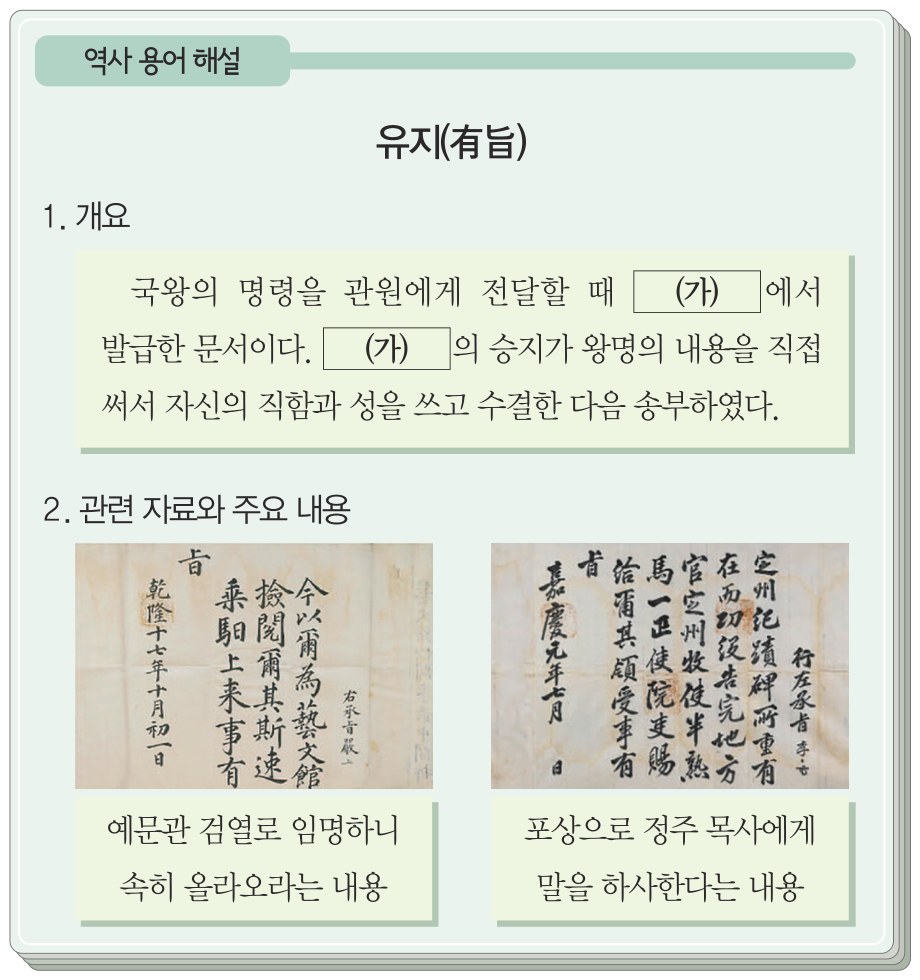 역사 용어 해설
유지(有旨)
1. 개요
국왕의 명령을 관원에게 전달할 때 (가)에서
발급한 문서이다. (가)의 승지가 왕명의 내용을 직접
써서 자신의 직함과 성을 쓰고 수결한 다음 송부하였다.
2. 관련 자료와 주요 내용
右承旨嚴
今以爾為藝文館
檢閱爾其斯速
乘馹上来事有
旨
乾隆十七年十月初一日
行左承旨李
定州紀蹟碑所重有
在而功役告完地方
官定州牧使半熟
馬一匹使院吏賜
給爾其領受事有
旨
嘉慶元年七月 日
예문관 검열로 임명하니
속히 올라오라는 내용
포상으로 정주 목사에게
말을 하사한다는 내용